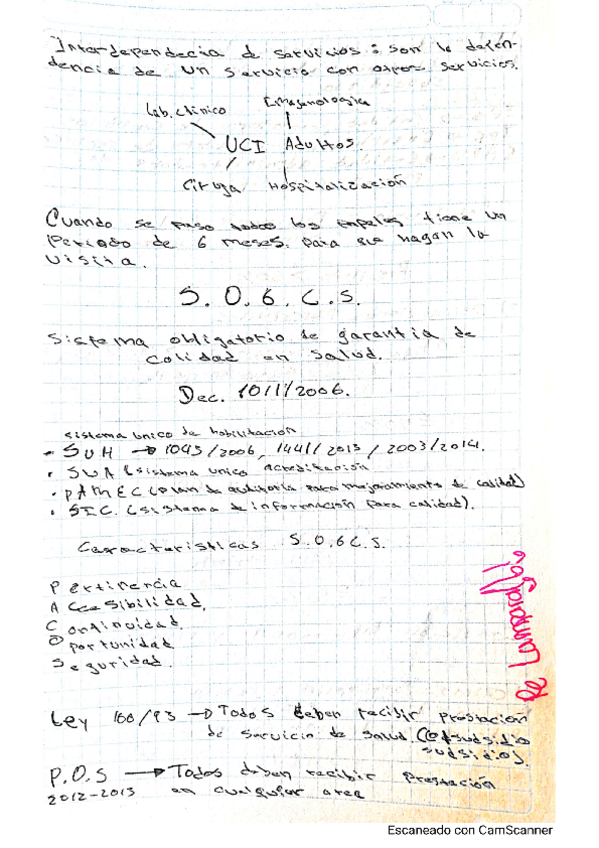 Interdependecia de servicios: son la depen-
dencia de un servicio con otros servicios.
Lab. clinico Imagenologica
UCI Adultos.
Cirugia Hospitalización
Cuando se paso todos los papeles tiene un
Periodo de 6 meses. para que hagan la
visita.
S.O.G.C.S.
Sistema obligatorio de garantia de
calidad en salud.
Dec. 1011/2006.
sistema unico de habilitación
• SUH → 1043/2006, 1441/2013, 2003/2014.
• SUA (sistema unico acreditación
• PAMEC (plan de auditoria para mejoramiento de calidad)
• SIC. (sistema de información para calidad).
Caracteristicas S.O.G.C.S.
Pertinencia
Accesibilidad.
Continuidad.
Oportunidad
Seguridad.
Ley 100/93 → Todos deben recibir prestación
de servicio de salud.
subsidio).
P.O.S → Todos deban recibir prestación
2012-2013 en cualquier area
Escaneado con CamScanner